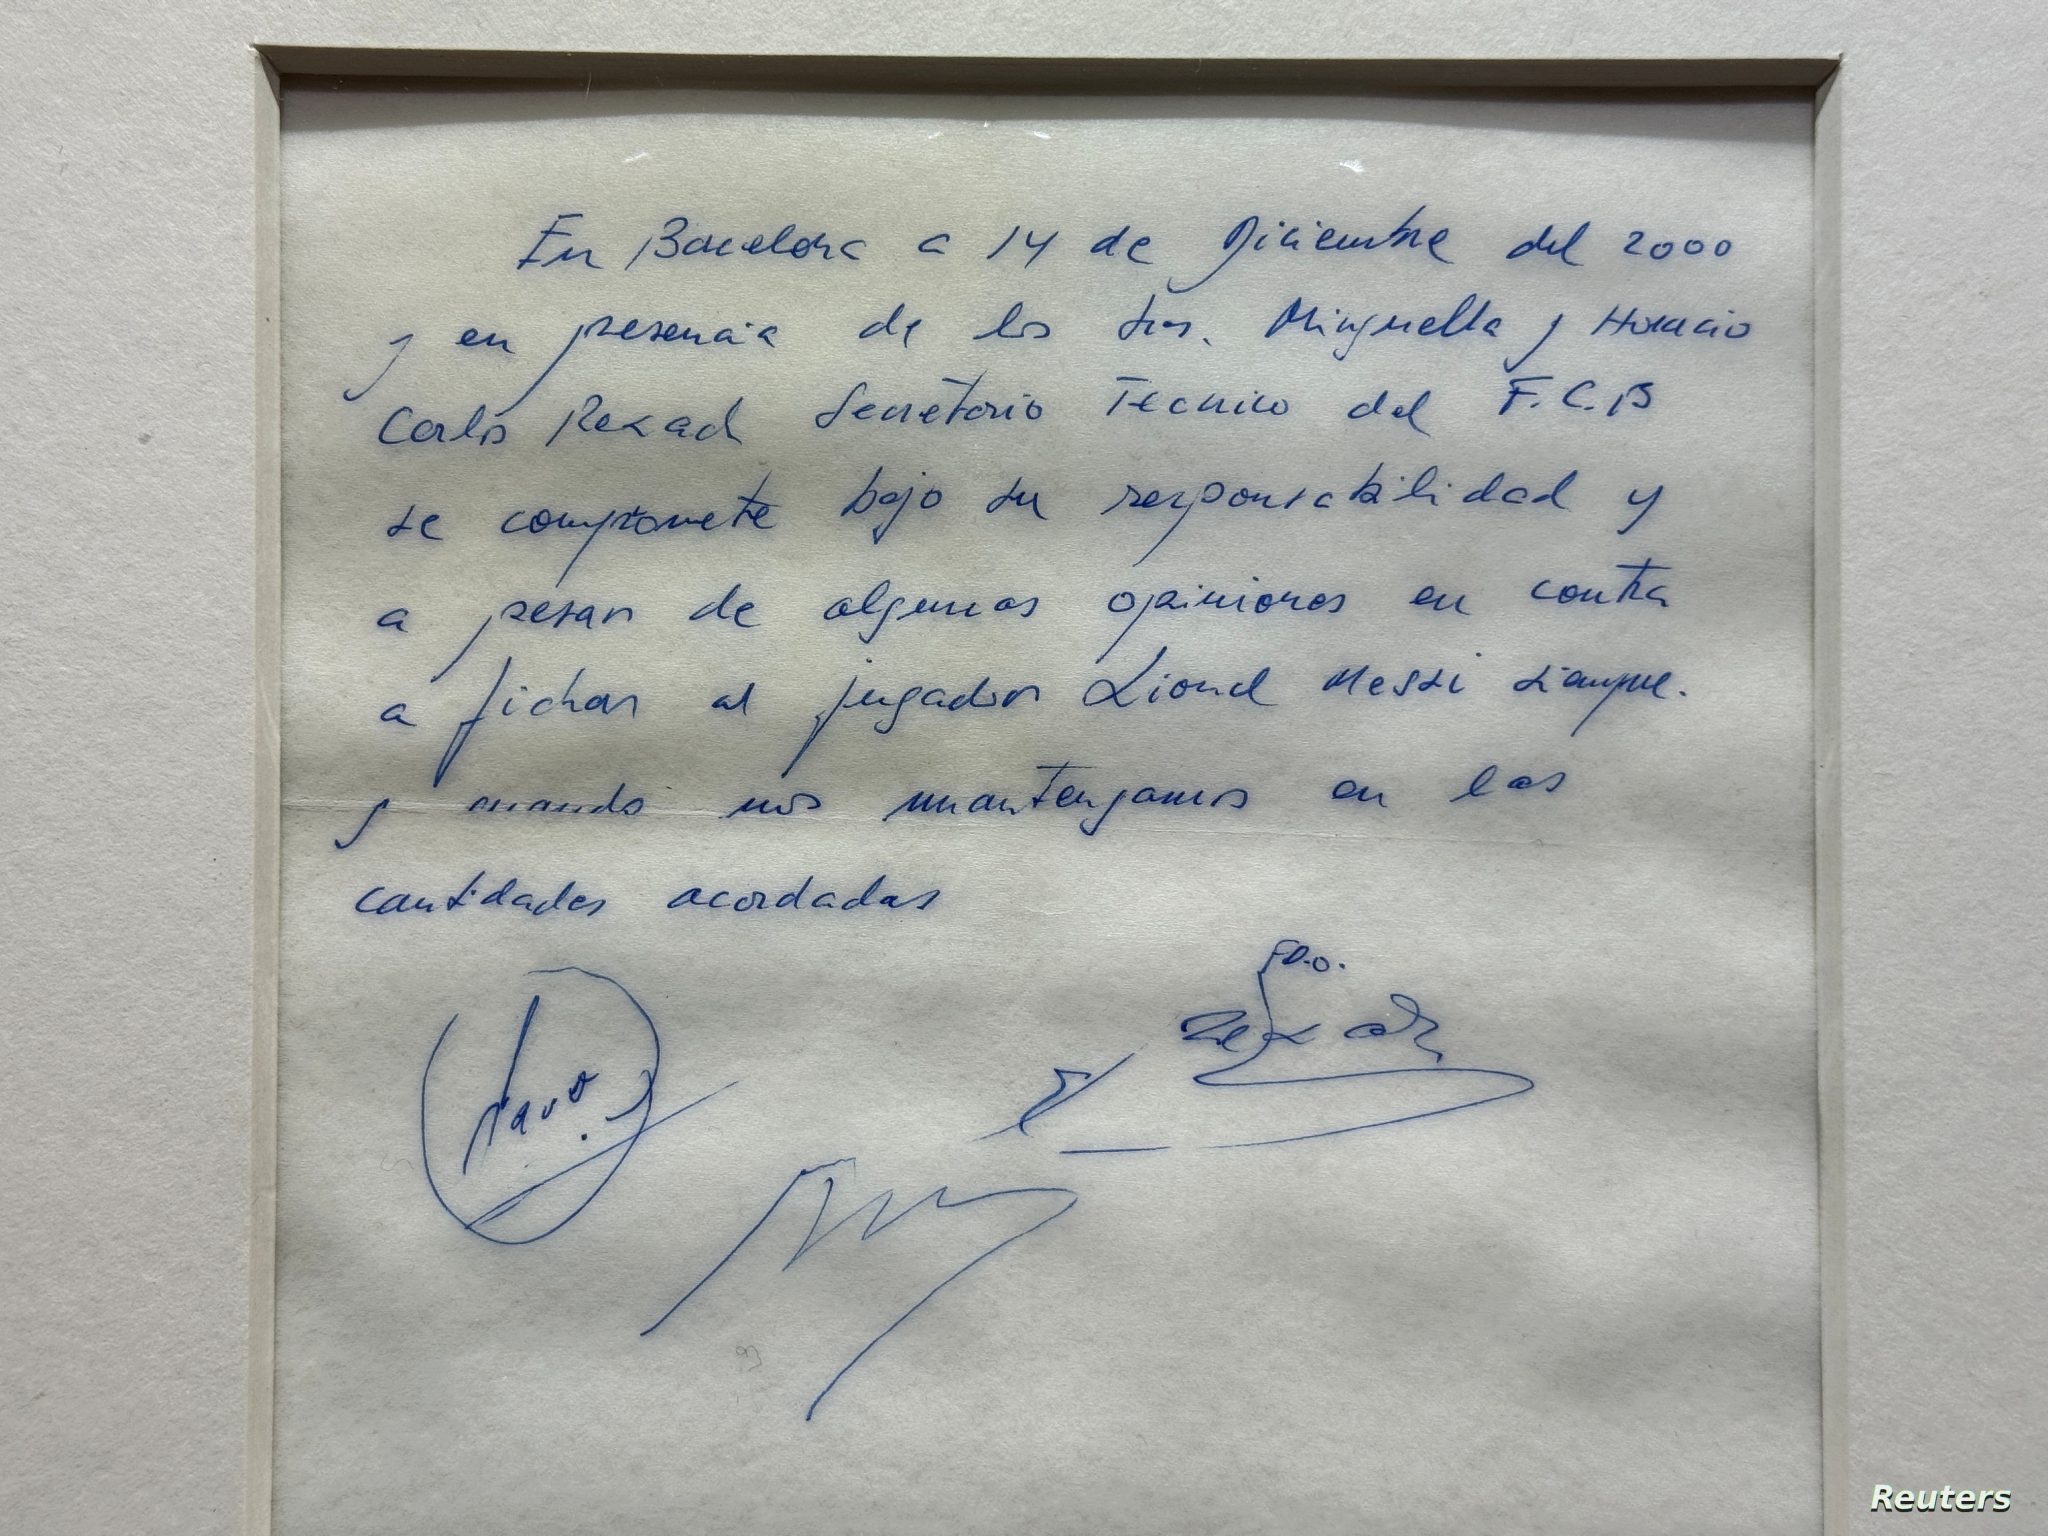 En Barcelona a 14 de Diciembre del 2000
y en presencia de los Sres. Minguella y Horacio
Carlos Rexach Secretario Tecnico del F.C.B
se compromete bajo su responsabilidad y
a pesar de algunas opiniones en contra
a fichar al jugador Lionel Messi siempre.
y cuando nos mantengamos en las
cantidades acordadas
FDO.
Rexach
Reuters